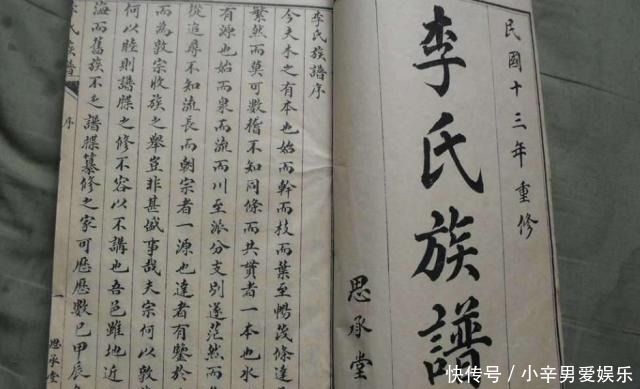 民國十三年重修
李氏族譜
思承堂
李氏族譜序
今夫木之有本也始而榦而枝而葉至暢茂條達
繁然而莫可數稽不知同條而共貫者一本也水
有源也始而泉而流而川至派分支別遂茫然而
從追尋不知流長而朝宗者一源也達者有鑒於
而為敦宗收族之舉豈非甚盛事哉夫宗何以敦
何以睦則譜牒之修不容以不講也吾邑雖地近
海而舊族不乏譜牒纂修之家可歷歷數已甲辰
李氏族譜
序
一
思承堂
快传号/小辛男爱娱乐